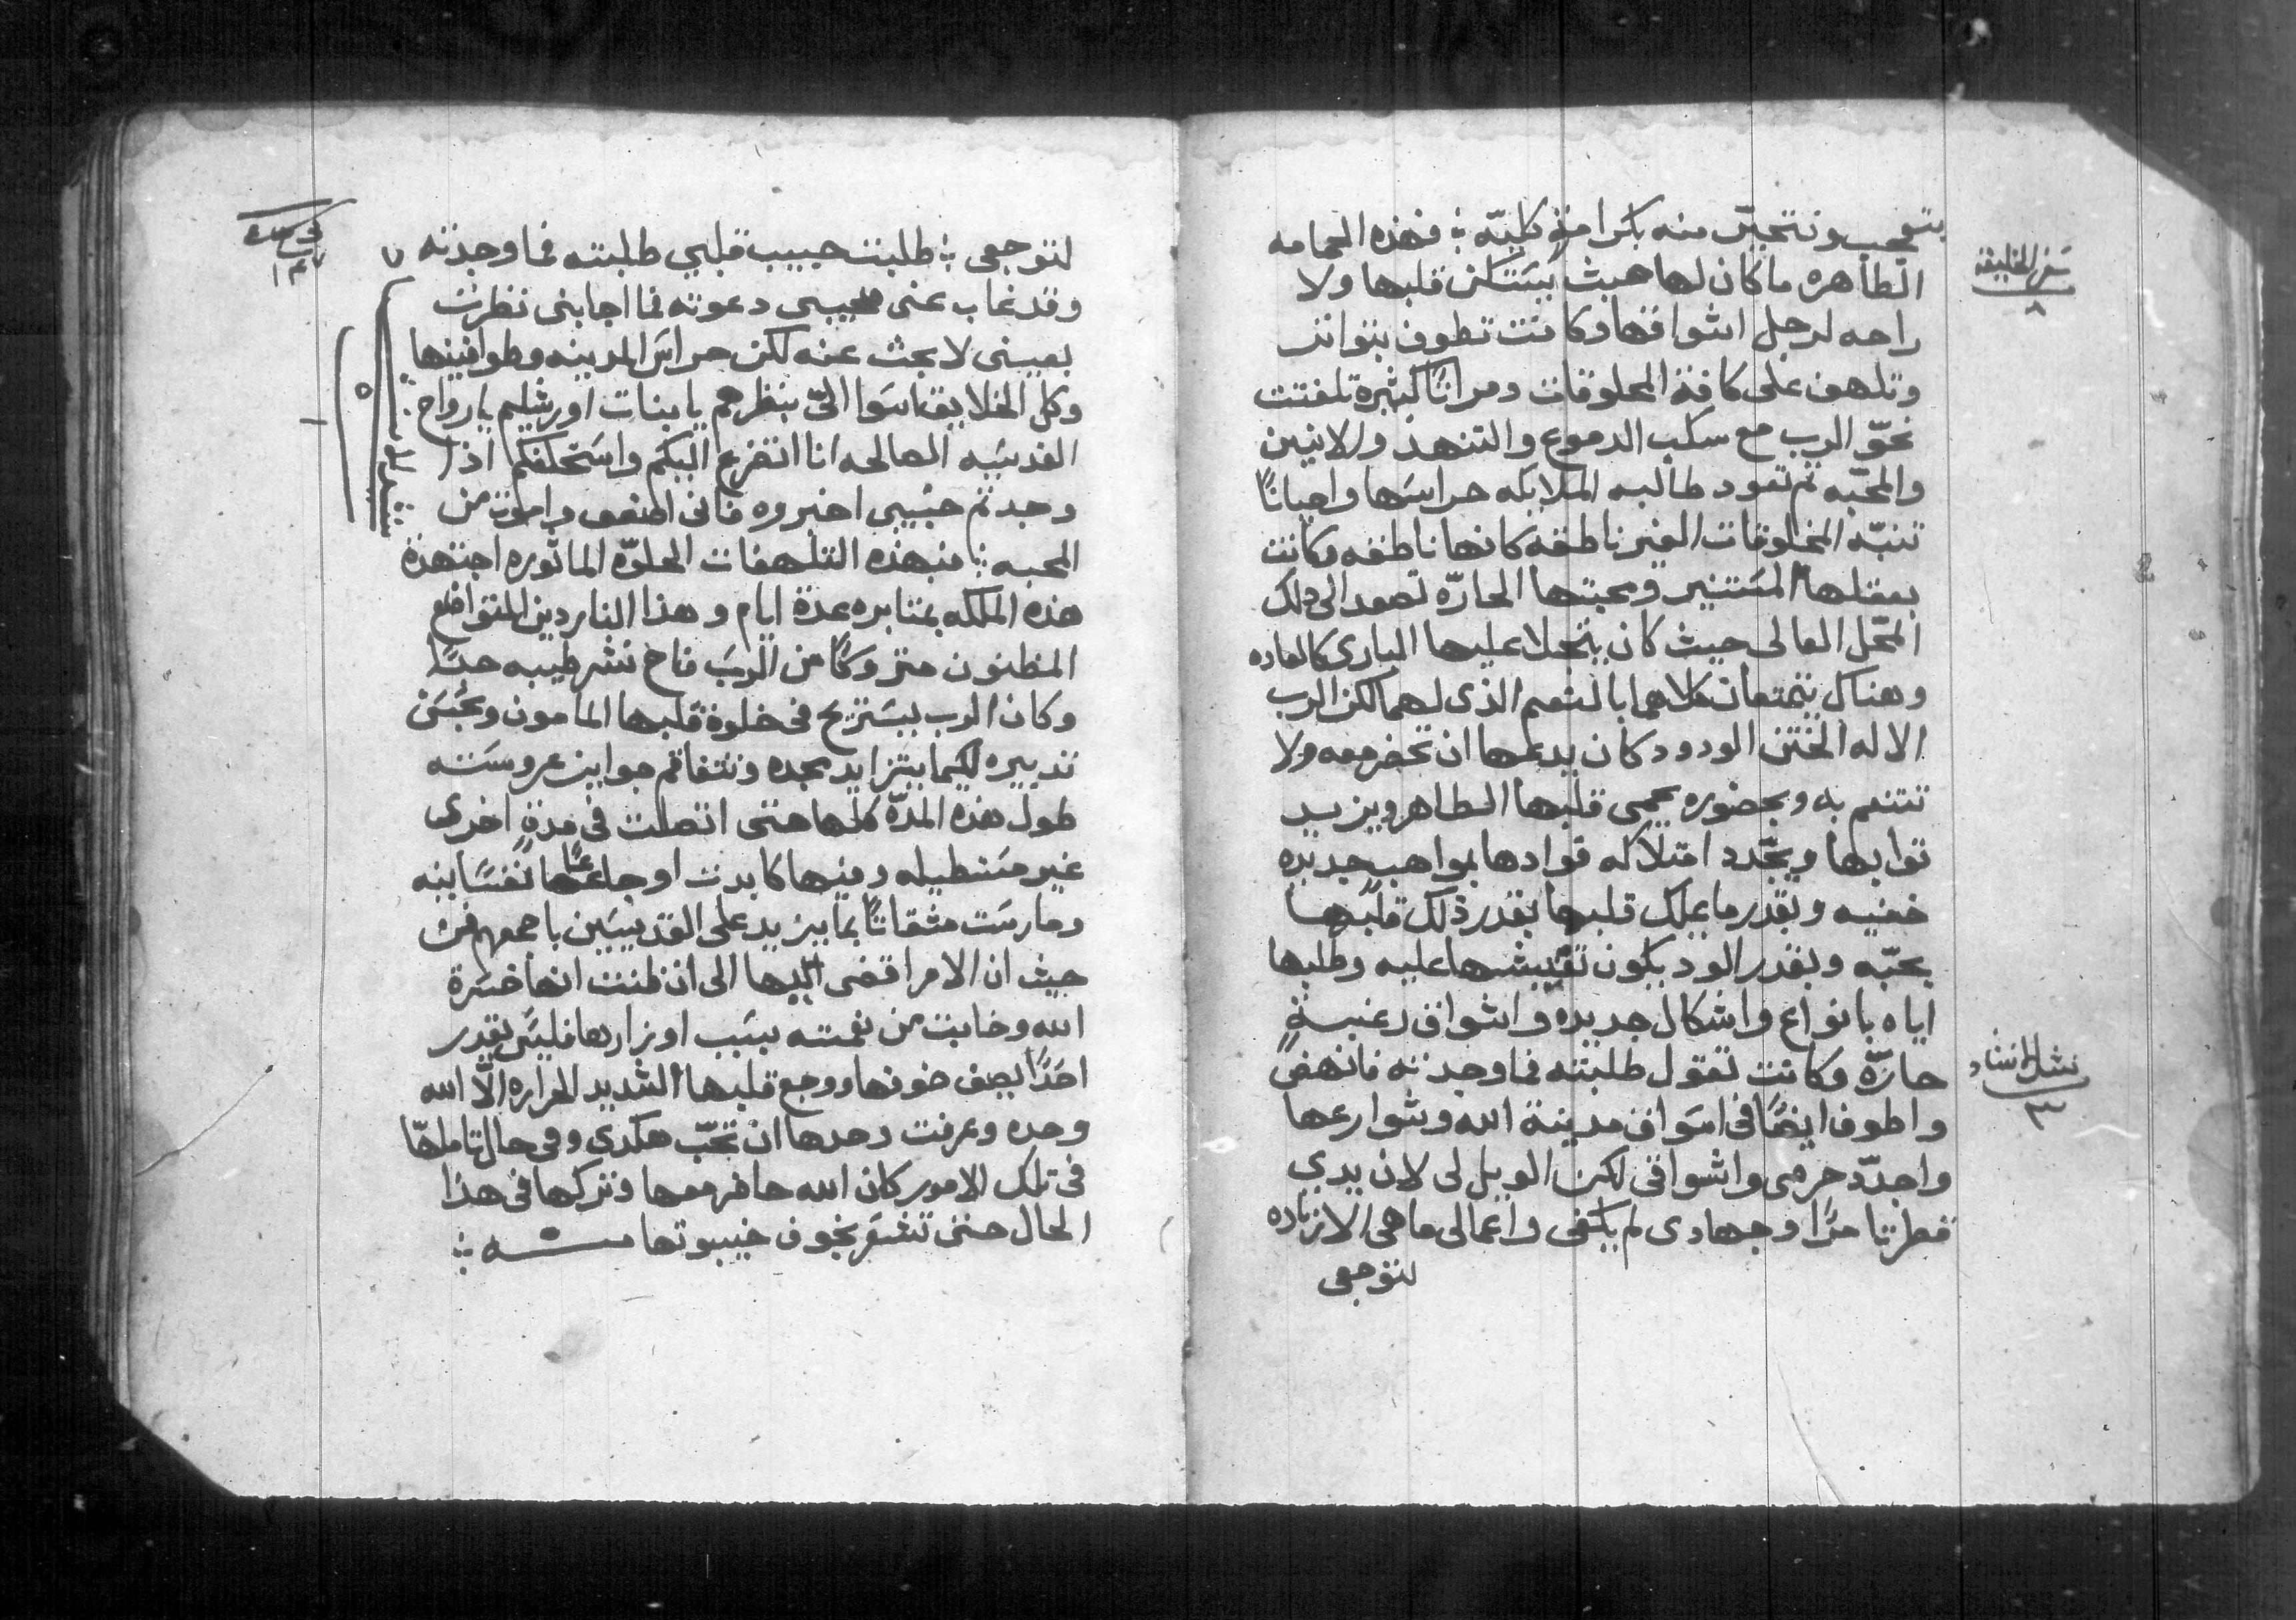 بتعجب ونتحيّر منه بكرامةٍ كليّه ܀ فهذه الحمامه
الطاهره ما كان لها هبث بيستكن قلبها ولا
راحه لرجل اشواقها وكانت تطوف بتواتر
وتلهف على كافة المخلوقات ومرارًا كثيرة تلفتت
نحوّ الرب مع سكب الدموع والتنهد والانين
والمحبّه ثم تعود طالبه الملايكه حراسها واحيانًا
تنبّه المخلوقات الغير ناطقه كانها ناطقه وكانت
بعقلها المستنير ومحبتها الحارّه تصعد الى ذلك
المحل العالى حيث كان يتجلا عليها البارى كالعاده
وهناك يتمتعان كلاهما بالنعم الذى لهما لكن الرب
الاله الختن الودود كان يدعها ان تحضر معه ولا
تتنعم به وبحضوره يحمى قلبها الطاهر ويزيد
ثوابها ويجّدد امتلاكه قوادها بمواهب جديده
خفيه وبقدر ما يملك قلبها بقدر ذلك قلبها
يحبّه وبقدر الود يكون تفتيشها عليه وطلبها
اياه بانواع واشكال جديده واشواق رغبةٍ
حارّه وكانت تقول طلبته فما وجدته فانهض
واطوف ايضًا فى اسواق مدينة الله وشوارعها
واجدّد حرصى واشواقى لكن الويل لى لان يدي
قطرتا مرًا وجهادى لم يكفى واعمالى ما هى الا زياده
لتوجعى
سفر الخليقه
٨
نشيد الانشاد
٣
لتوجعى ܀ طلبت حبيب قلبي طلبته فما وجدته
وقد غاب عنى حبيبى دعوته فما اجابنى نظرت
بعينى لابحث عنه لكن حراس المدينه وطوافينها
وكل الخلايق اسَوا اليّ بنظرهم يا بنات اورشليم يا رواح
القديسيه الصالحه انا اتضرع اليكم واستحلفكم اذا
وجدتم حبيبى اخبروه فانى اضعف واموت من
المحبه ܀ فبهذه التلهفات الحلوّه الماثوره اجتهدة
هذه الملكه بمثابره عدة ايام وهذا الناردين المتواضع
المظنون متروكًا من الرب فاح نشر طيبه جدًا
وكان الرب يستريح فى خلوة قلبها المامون وبحُسن
تدبيره لكيما يتزايد مجده وتتفاقم جوايز عروسته
طول هذه المدّه كلها حتى اتصلت فى مدةٍ اخرى
غير مستطيله وفيها كابدت اوجاعًا نفسانيه
ومارست مشقاتًا بما يزيد على القديسين باجمعهم فمن
حيث ان الامر اقضى اليها الى ان ظنت انها خسرة
الله وخابت من نعمته بسبب اوزارها فليس يقدر
احدًا يصف خوفها ووجع قلبها الشديد المراره الّا الله
وحده وعرفت وحدها ان تحّب هكدى وفى حال تاملها
فى تلك الامور كان الله حاضر معها وتركها فى هذا
الحال حتى تشعر بخوف خيبوتها منه ܀
٧
١٤٧
٥